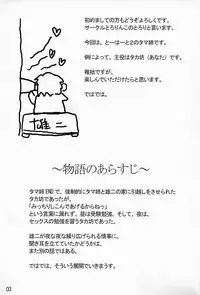 初めましての方もどうぞよろしくです。
サークルとろりんこのとろりと言います。
今回は、とーはーと2のタマ姉です。
例によって、主役はタカ坊（あなた）です。
稚拙ですが、
楽しんでいただけたらと思います。
ではでは。
雄二
～物語のあらすじ～
タマ姉ENDで、強制的にタマ姉と雄二の家に引越しをさせられた
タカ坊であったが、
「みっちりしこんであげるからねっ」
という言葉に漏れず、昼は受験勉強、そして、夜は
セックスの勉強に当てられるのであった。
雄二が夜な夜な繰り広げられる情事に、
聞き耳を立てていたかどうかは、
また別の話ではある。
ではでは、そういう展開でいきまーす。
02